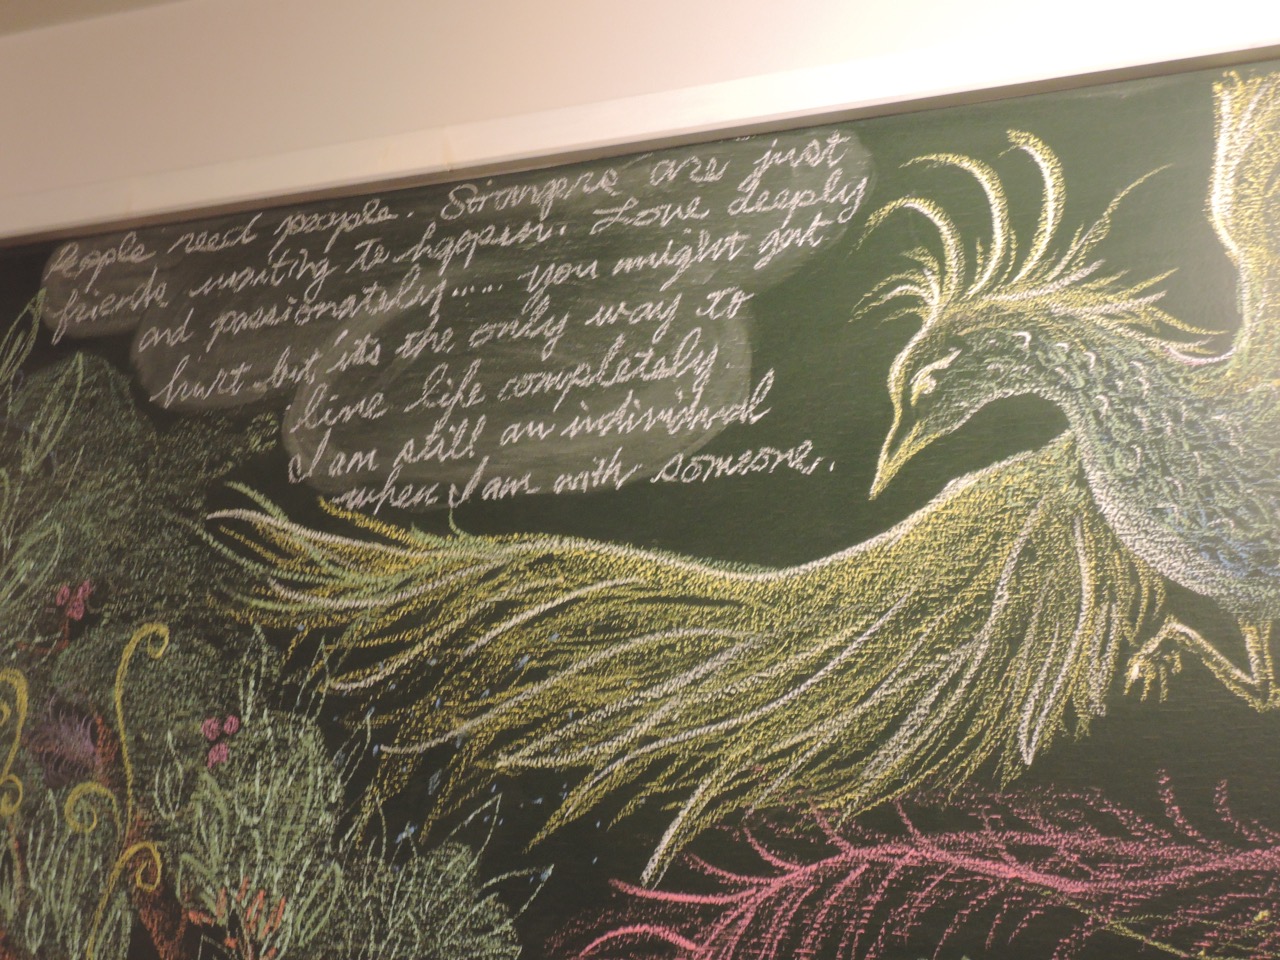 People need people. Strangers are just
friends waiting to happen. Love deeply
and passionately..... you might get
hurt but it's the only way to
live life completely.
I am still an individual
when I am with someone.